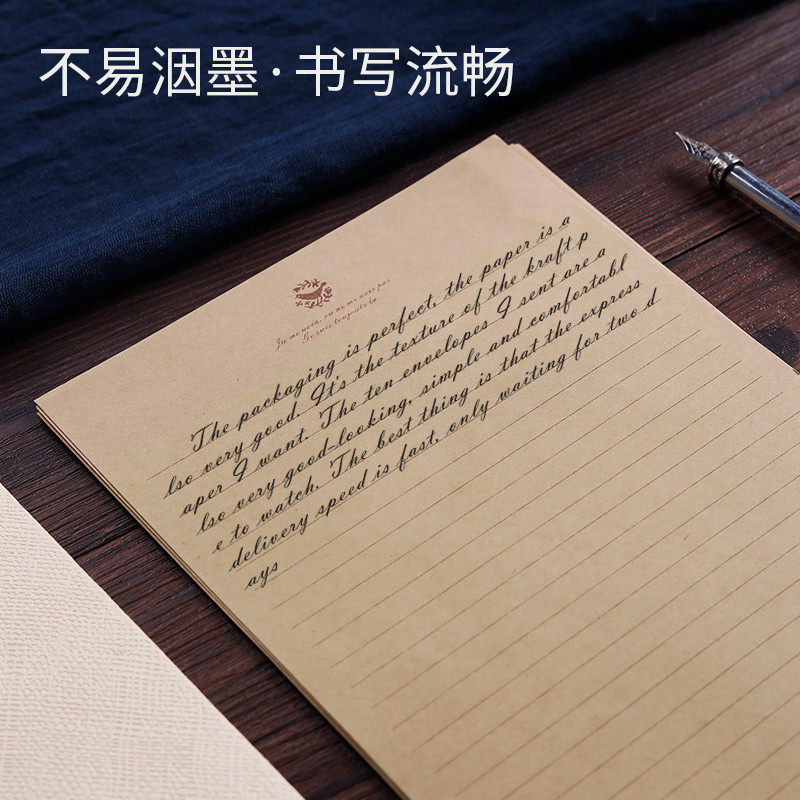 不易洇墨·书写流畅
The packaging is perfect, the paper is a
lso very good. It's the texture of the kraft p
aper I want. The ten envelopes I sent are a
lso very good-looking, simple and comfortabl
e to watch. The best thing is that the express
delivery speed is fast, only waiting for two d
ays